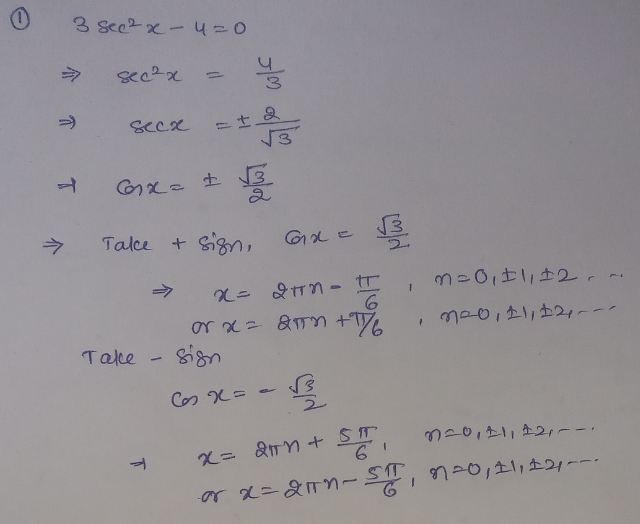 ① 3 sec²x - 4 = 0
⇒ sec²x = 4/3
⇒ secx = ± 2/√3
⇒ Cosx = ± √3/2
⇒ Take + sign, Cosx = √3/2
⇒ x = 2πn - π/6 , n=0, ±1, ±2 ...
or x = 2πn + π/6 , n=0, ±1, ±2, ---
Take - sign
Cos x = - √3/2
⇒ x = 2πn + 5π/6 , n=0, ±1, ±2, ---.
or x = 2πn - 5π/6 , n=0, ±1, ±2, ---.